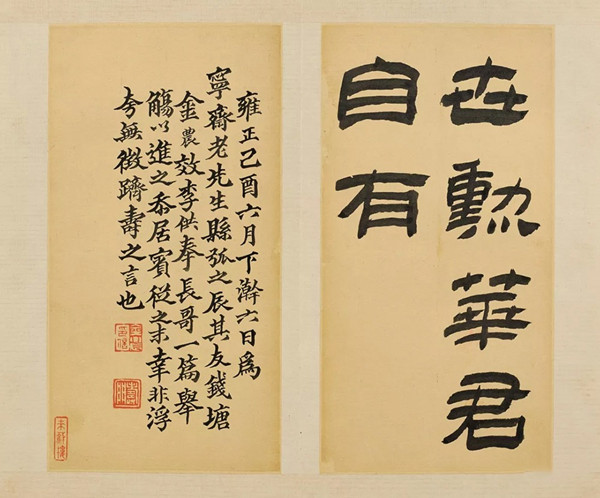 世勳華君
自有
雍正己酉六月下澣六日為
寧齋老先生縣弧之辰其友錢塘
金農效李供奉長哥一篇舉
觴以進之忝居賓從之末幸非浮
夸無徵躋壽之言也
壽門